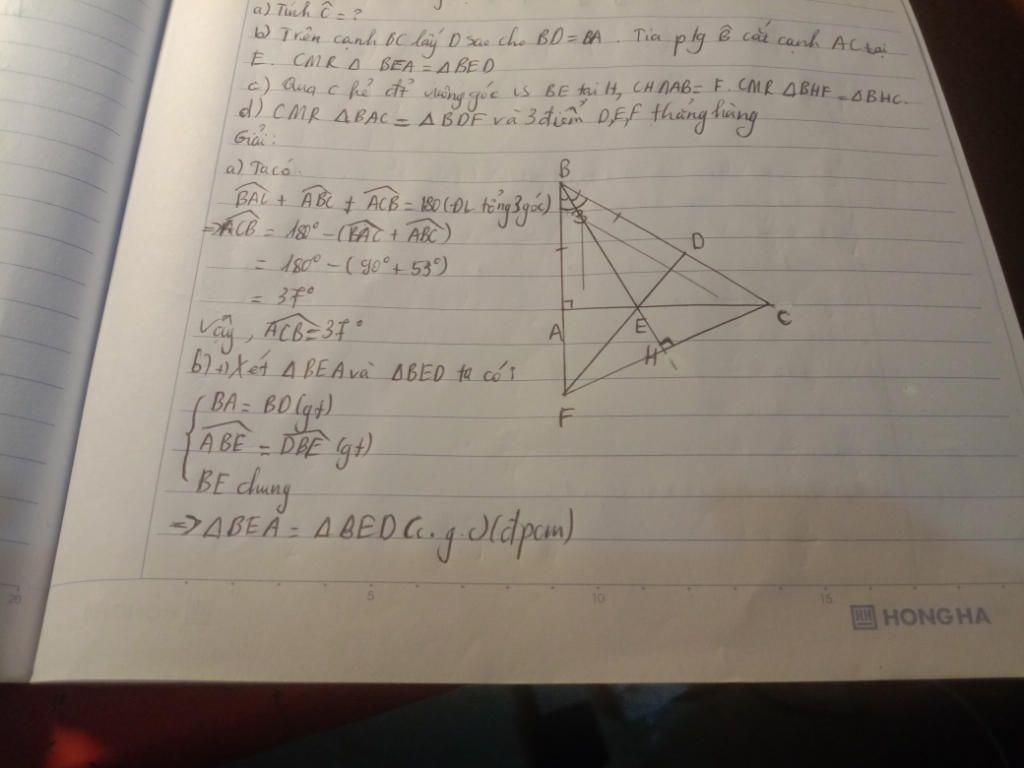 a) Tính Ĉ = ?
b) Trên cạnh BC lấy D sao cho BD = BA. Tia p/g B̂ cắt cạnh AC tại
E. CMR Δ BEA = Δ BED
c) Qua C kẻ đt vuông góc vs BE tại H, CH ∩ AB = F. CMR ΔBHF = ΔBHC.
d) CMR ΔBAC = ΔBDF và 3 điểm D,E,F thẳng hàng
Giải:
a) Ta có:
BAC + ABC + ACB = 180 (ĐL tổng 3 góc)
=> ACB = 180° - (BAC + ABC)
= 180° - (90° + 53°)
= 37°
Vậy, ACB = 37°
b) +) Xét ΔBEA và ΔBED ta có:
BA = BD (gt)
ABE = DBE (gt)
BE chung
=> ΔBEA = ΔBED (c.g.c) (đpcm)
B
D
A
E
C
H
F
5
10
15
20
HH HONG HA